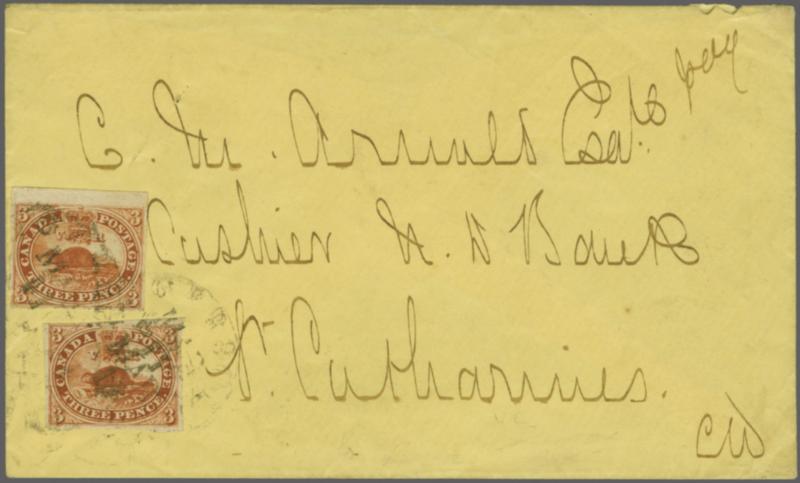 C. M. Arnold Esq.
Cashier N. D Bank
St. Catharines.
CW
CANADA POSTAGE
3 3
THREE PENCE.
3 3
CANADA POSTAGE
3 3
THREE PENCE.
3 3